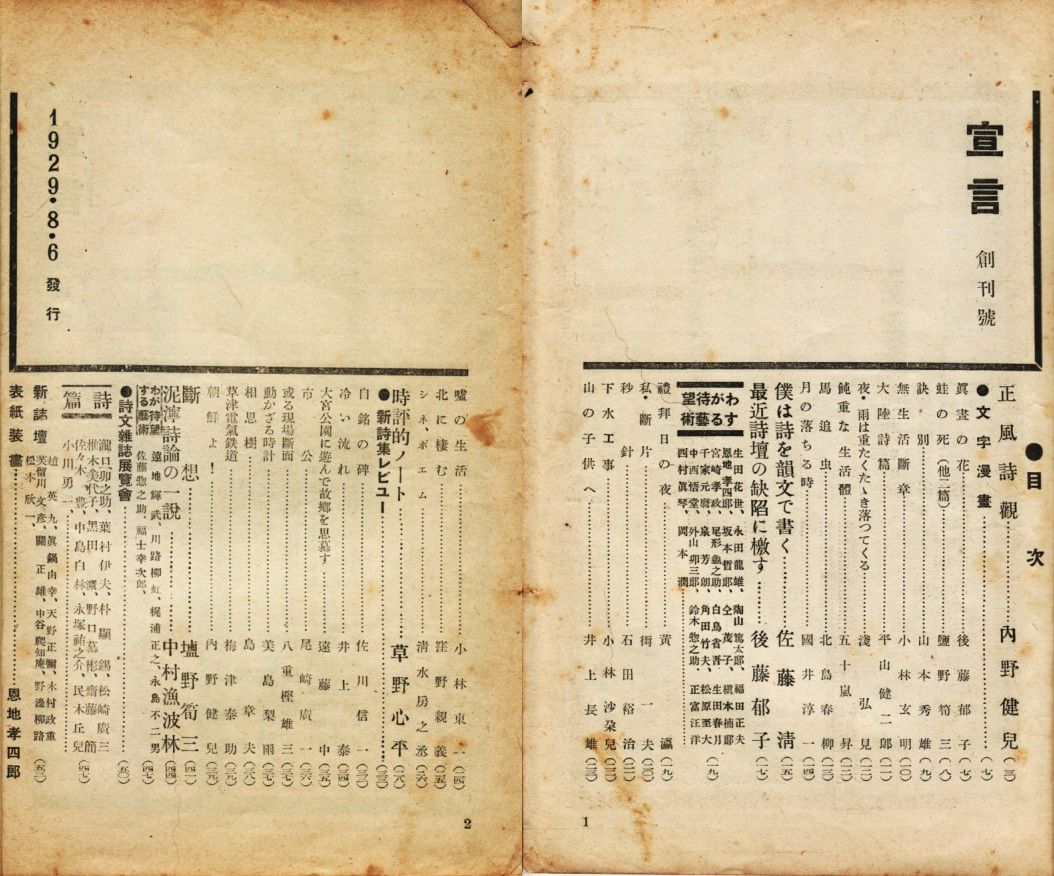 宣言
創刊號
●目次
正風詩觀……內野健兒(二)
●文字漫畫……(七)
眞晝の花……後藤郁子(六)
蛙の死(他二篇)……鹽野筍三(八)
訣別……山本秀雄(九)
無生活斷章……小林玄明(一〇)
大陸詩篇……平山健二郎(二)
夜・雨は重たくたゝき落つてくる……淺弘見(二)
鈍重な生活體……五十嵐昇
馬追虫……北島春柳
月の落ちる時……國井淳一(四)
僕は詩を韻文で書く……佐藤淸(五)
最近詩壇の缺陷に檄す……後藤郁子(七)
わがする待望藝術
生田花世、永田龍雄、陶山篤太郎、福田正夫
恩地孝四郎、坂本哲郎、仝茂子、槇本楠郎
宮崎孝政、尾形龜之助、白鳥省吾、生田春月
千家元麿、泉芳朗、角田竹夫、松原至大
中西悟堂、外山卯三郎、鈴木惣之助、正富汪洋
四村眞琴、岡本潤
(一九)
禮拜日の夜……黃瀛(一九)
私・斷片……街一夫(二〇)
秒針……石田裕治(二)
下水工事……小林沙朶兒
山の子供へ……井上長雄(二三)
1
嘘の生活……小林東一(二四)
北に棲む……窪野親義(二五)
シネ、ポエム……淸水房之丞(二六)
時評的ノート……草野心平(二八)
●新詩集レビユー……(三三)
自銘の碑……佐川信一(三三)
冷い流れ……井上泰(三四)
大宮公園に遊んで故鄕を思慕す……遠藤中(三五)
市・公……尾崎廣一(三六)
或る現場斷面……八重樫雄三
動かざる時計……美島梨雨
相思樹……島章夫
草津電氣鉄道……梅津泰助
朝鮮よ!……內野健兒(三九)
斷想……壚野筍三(四一)
泥濘詩論の一說……中村漁波林(四四)
わが待望する藝術
遠地輝武、川路柳虹、梶浦正之、永島不二男
佐藤惣之助、福士幸次郎、
(四七)
●詩文雜誌展覽會……(五〇)
詩篇
瀧口卯之助、葉村伊夫、朴顯錫、松崎廣三
椎木美代子、黑田鷹、野口墓彬、齋藤節
佐々木豊、中島白林、永塚祐之介、民木丘兒
小川勇一……(四七)
新詩壇
趙英九、眞鍋由幸、天野正彌、木村政重
芙留川文彥、關正雄、中谷爬知庵、野邊柳路
松本欣一、……(五二)
表紙裝畫……恩地孝四郞
1929・8・6發行
2